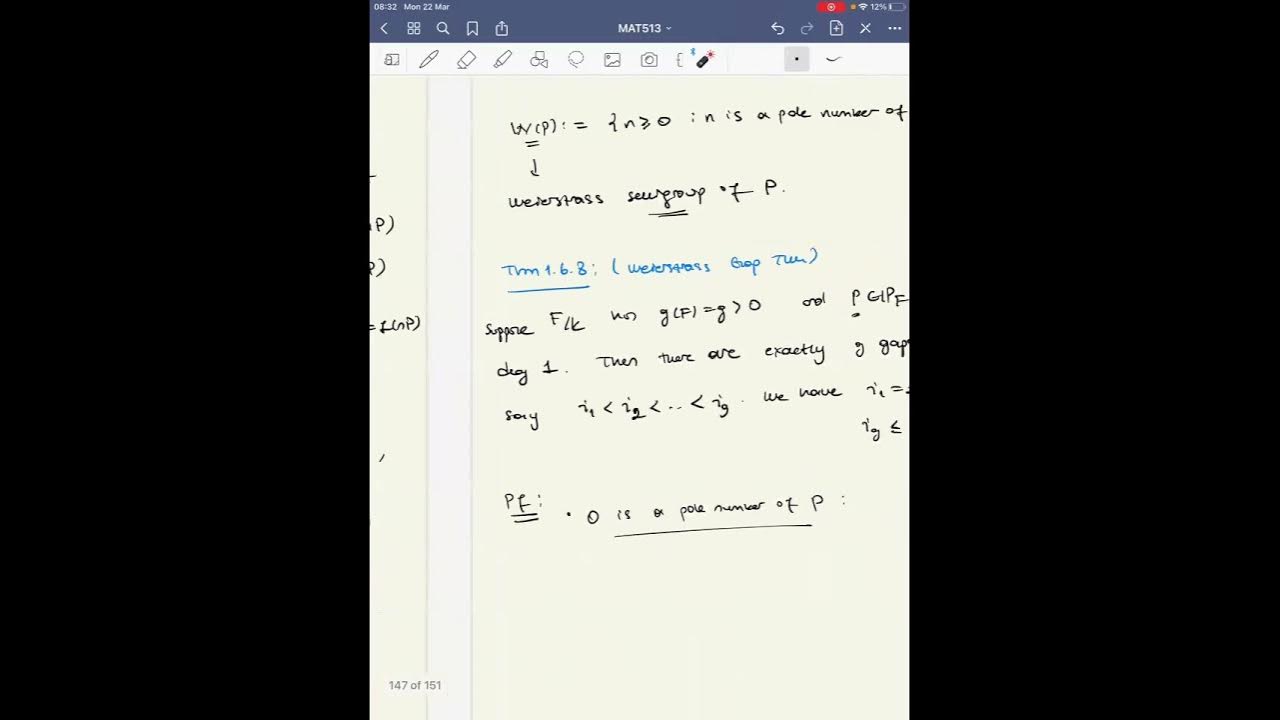 08:32 Mon 22 Mar
12%
MAT513
W(P) := {n ≥ 0 : n is a pole number of
↓
Weierstrass semigroup of P.
P)
P)
= L(nP)
Thm 1.6.8: (Weierstrass Gap Thm)
Suppose F/K has g(F) = g > 0 and P ∈ P_F
deg 1. Then there are exactly g gap
say i₁ < i₂ < .. < i_g. We have i₁ =
i_g ≤
Pf: • 0 is a pole number of P :
147 of 151